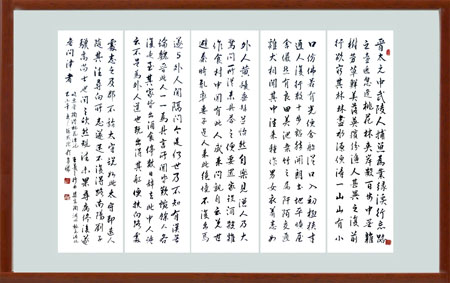 晉太元中武陵人捕魚為業緣溪行忘路
之遠近忽逢桃花林夾岸數百步中無雜
樹芳草鮮美落英繽紛漁人甚異之復前
行欲窮其林林盡水源便得一山山有小
口仿佛若有光便舍船從口入初極狹才
通人復行數十步豁然開朗土地平曠屋
舍儼然有良田美池桑竹之屬阡陌交通
雞犬相聞其中往來種作男女衣著悉如
外人黃髮垂髫並怡然自樂見漁人乃大
驚問所從來具答之便要還家設酒殺雞
作食村中聞有此人咸來問訊自云先世
避秦時亂率妻子邑人來此絕境不復出焉
遂与外人間隔問今是何世乃不知有漢無
論魏晉此人一一為具言所聞皆歎惋餘人各
復延至其家皆出酒食停數日辭去此中人語
云不足為外人道也既出得其船便扶向路處
處誌之及郡下詣太守說如此太守即遣人
隨其往尋向所誌遂迷不復得路南陽劉子
驥高尚士也聞之欣然規往未果尋病終後遂
無問津者